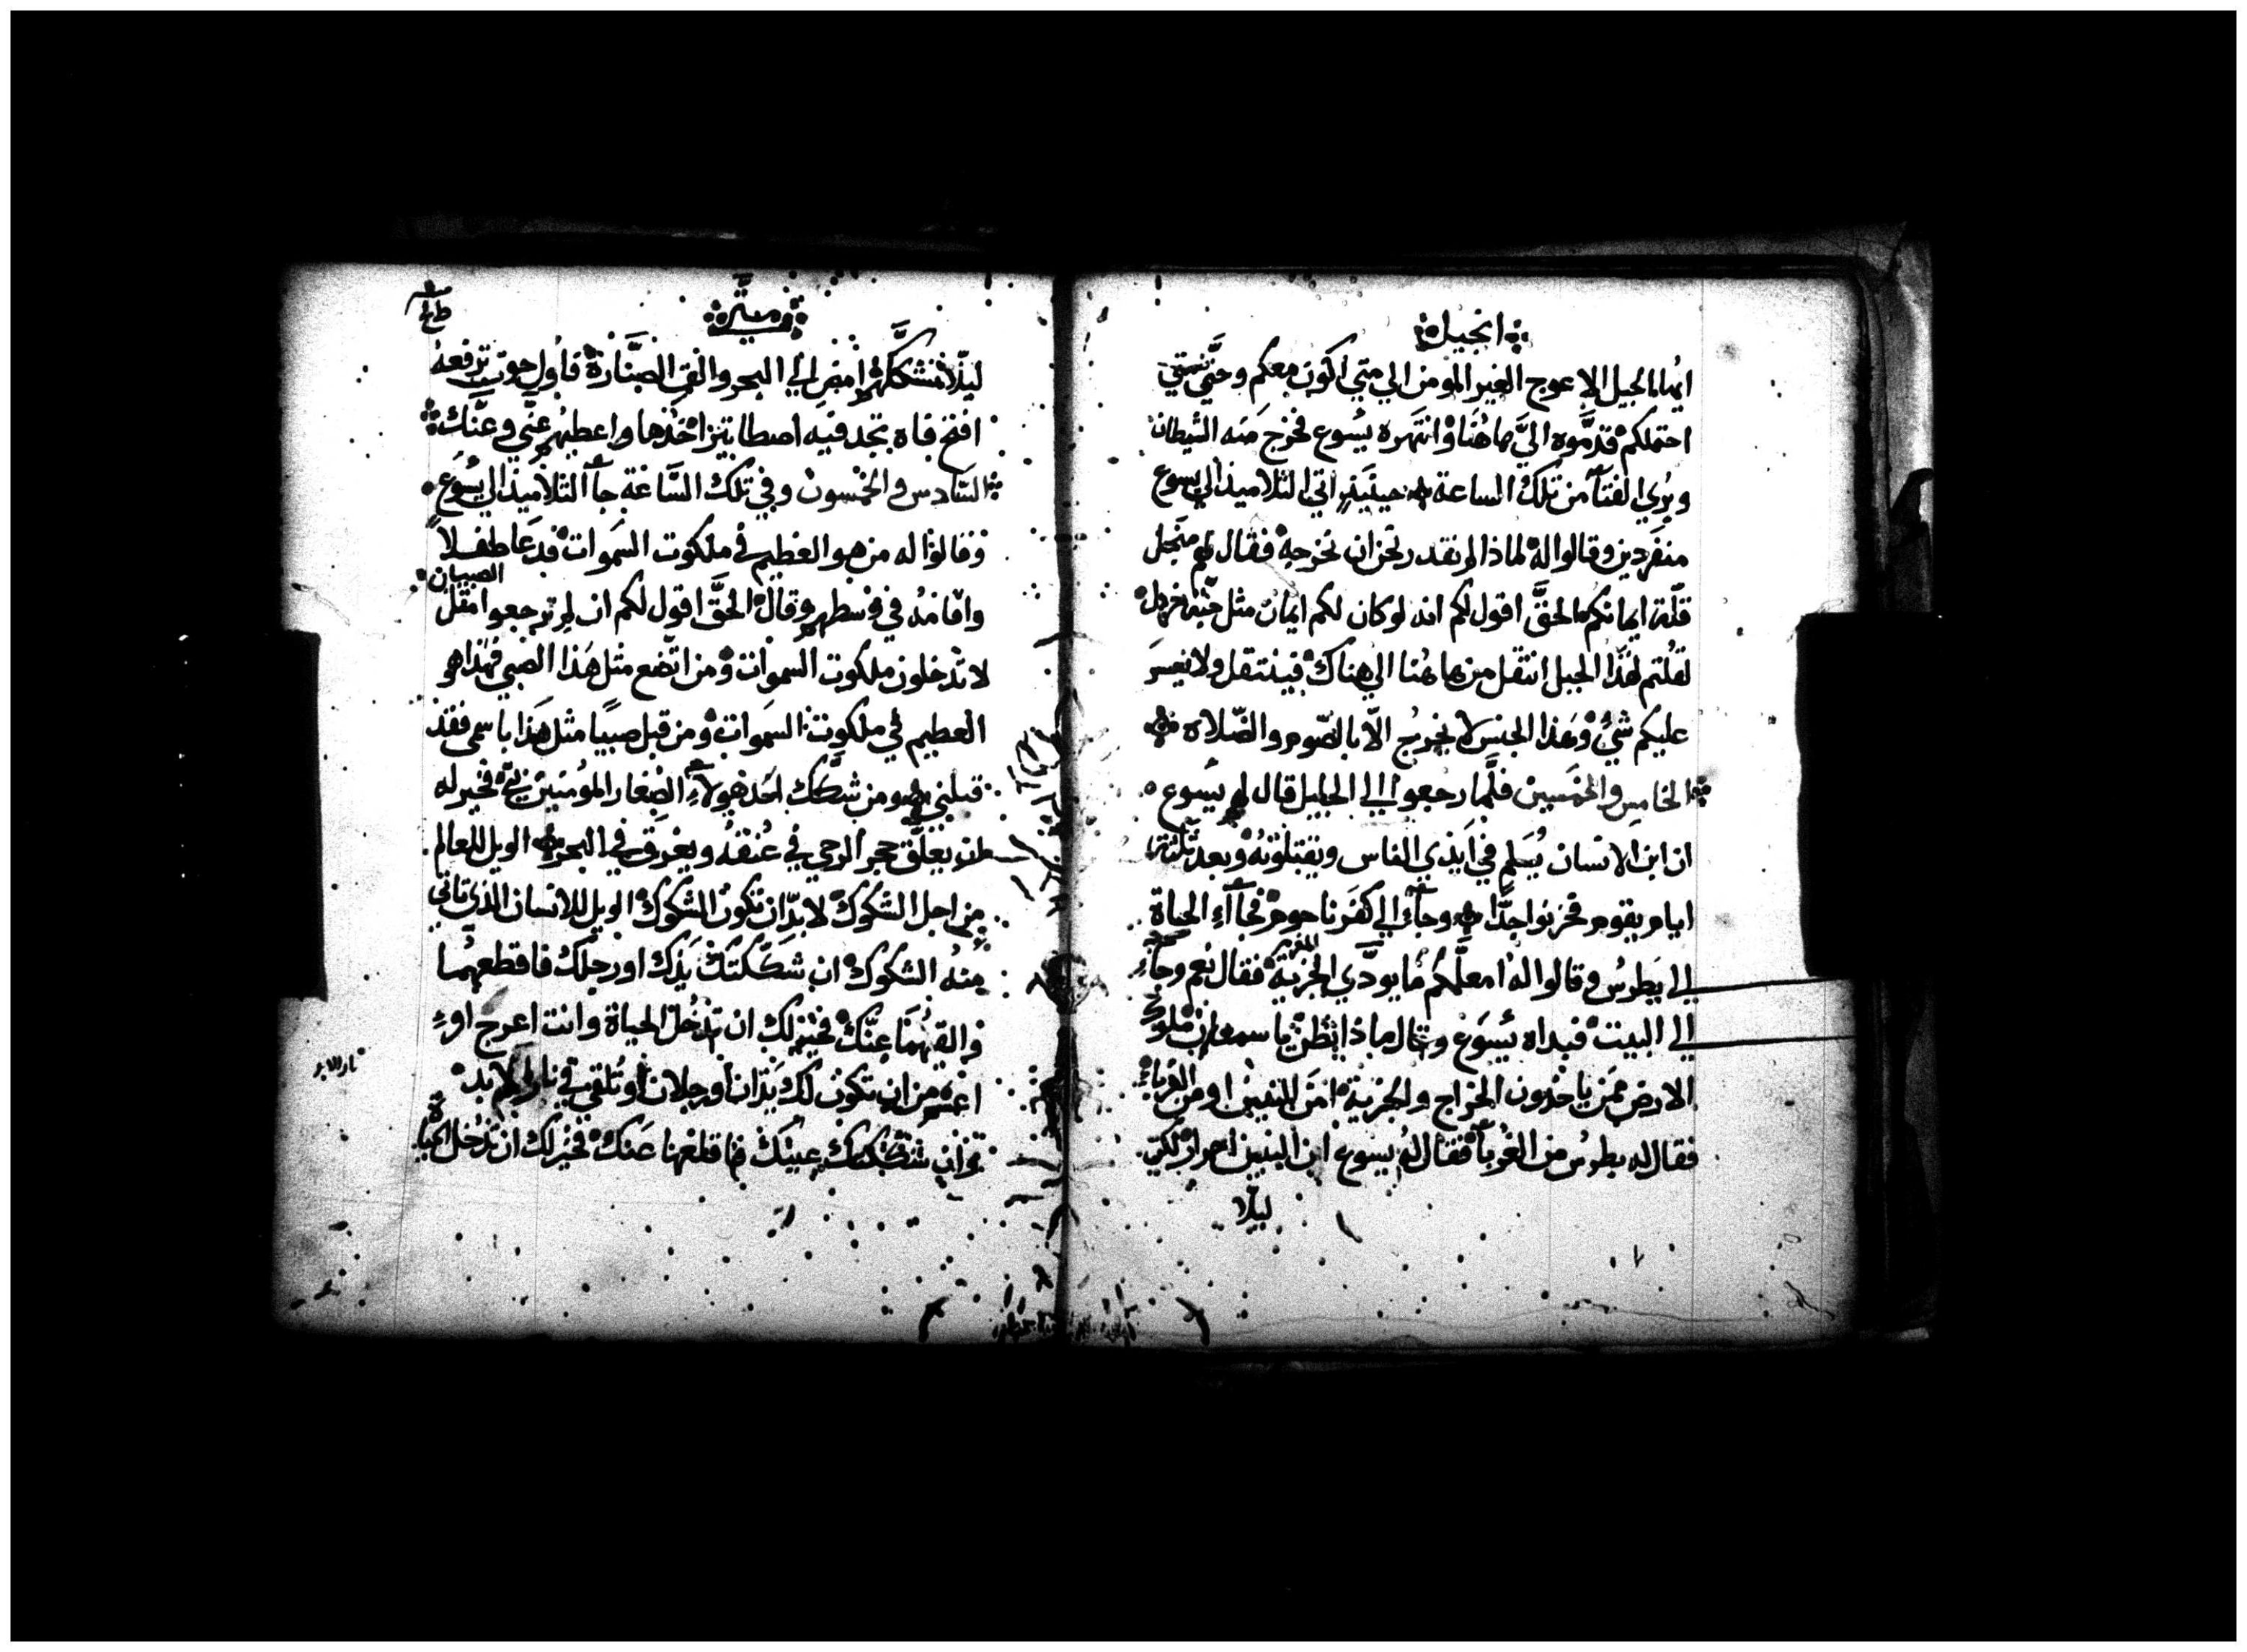 انجيل
ايها الجيل الاعوج الغير المومن الي متي اكون معكم وحتَّي متي
احتملكم قدَّموه اليَّ هاهُنا وانتهره يسوع فخرج منه الشيطان
وبري الفتآ من تلك الساعة حينيذٍ اتي التلاميذ الي يسوع
منفردين وقالوا له لماذا لم نقدر نحن ان نخرجه فقال لهم من اجل
قلّة ايمانكم الحقَّ اقول لكم انه لو كان لكم ايمان مثل حبّة خردل
لقلتم لهذا الجبل انتقل من هاهُنا الي هناك فينتقل ولا يعسر
عليكم شيٌ وهذا الجنس لا يخرج الّا بالصّوم والصّلاه
الخامس والخمسين فلَّما رجعوا الي الجليل قال لهم يسوع
ان ابن الانسان يُسلم في ايذي الناس ويقتلونهُ وبعد ثلثة
ايام يقوم فحزنوا جدًّا وجاء الي كفرناحوم فجآء الجباة
الي بطرس وقالوا له امعلّمكم ما يودّي الجزية فقال نعم وجآء
الي البيت فبداه يسوع وقال ماذا تظن يا سمعان ملوك
الارض ممن ياخذون الخراج والجزية امن البنين او من الغربآء
فقال له بطرس من الغُربآ فقال لهُ يسوع ان البنين احرار لكن
ليلّا
ومتيه
ليلّا نشككهم امضِ الي البحر والقِ الصّنَّارة فاول حوت ترفعه
افتح فاه تجد فيه اصطاتيرا خذها واعطيهم عنّي وعنَّك
السَّادس والخمسون وفي تلك السَّاعة جآ التلاميذ الي يسُوع
وقالوا له من هو العظيم في ملكوت السموات فدعا طفلاً
واقامهُ في وسطهم وقال الحقَّ اقول لكم ان لم ترجعوا مثل
الصبيان
لا تدخلون ملكوت السموات ومن اتضع مثل هذا الصبي فهذا هو
العظيم في ملكوت السموات ومن قبل صبيًا مثل هذا باسمي فقد
قبلني ومن شكَّك احد هولاءِ الصغار المؤمنين بي فخير له
ان يعلّق حجر الرحي في عُنقهُ ويغرق في البحر الويل للعالم
من اجل الشكوك لا بدّ ان تكون الشكوك الويل للانسان الذي تاتي
منهُ الشكوك ان شكّكتك يدك او رجلك فاقطعهما
والقهُما عنّك فخير لك ان تدخُل الحياة وانت اعرج او
اعسم من ان تكون لك يدان او رجلان وتُلقي في نار الابد
وان شككتك عينك فاقلعها عنك فخير لك ان تدخل الحياة
نار الابد